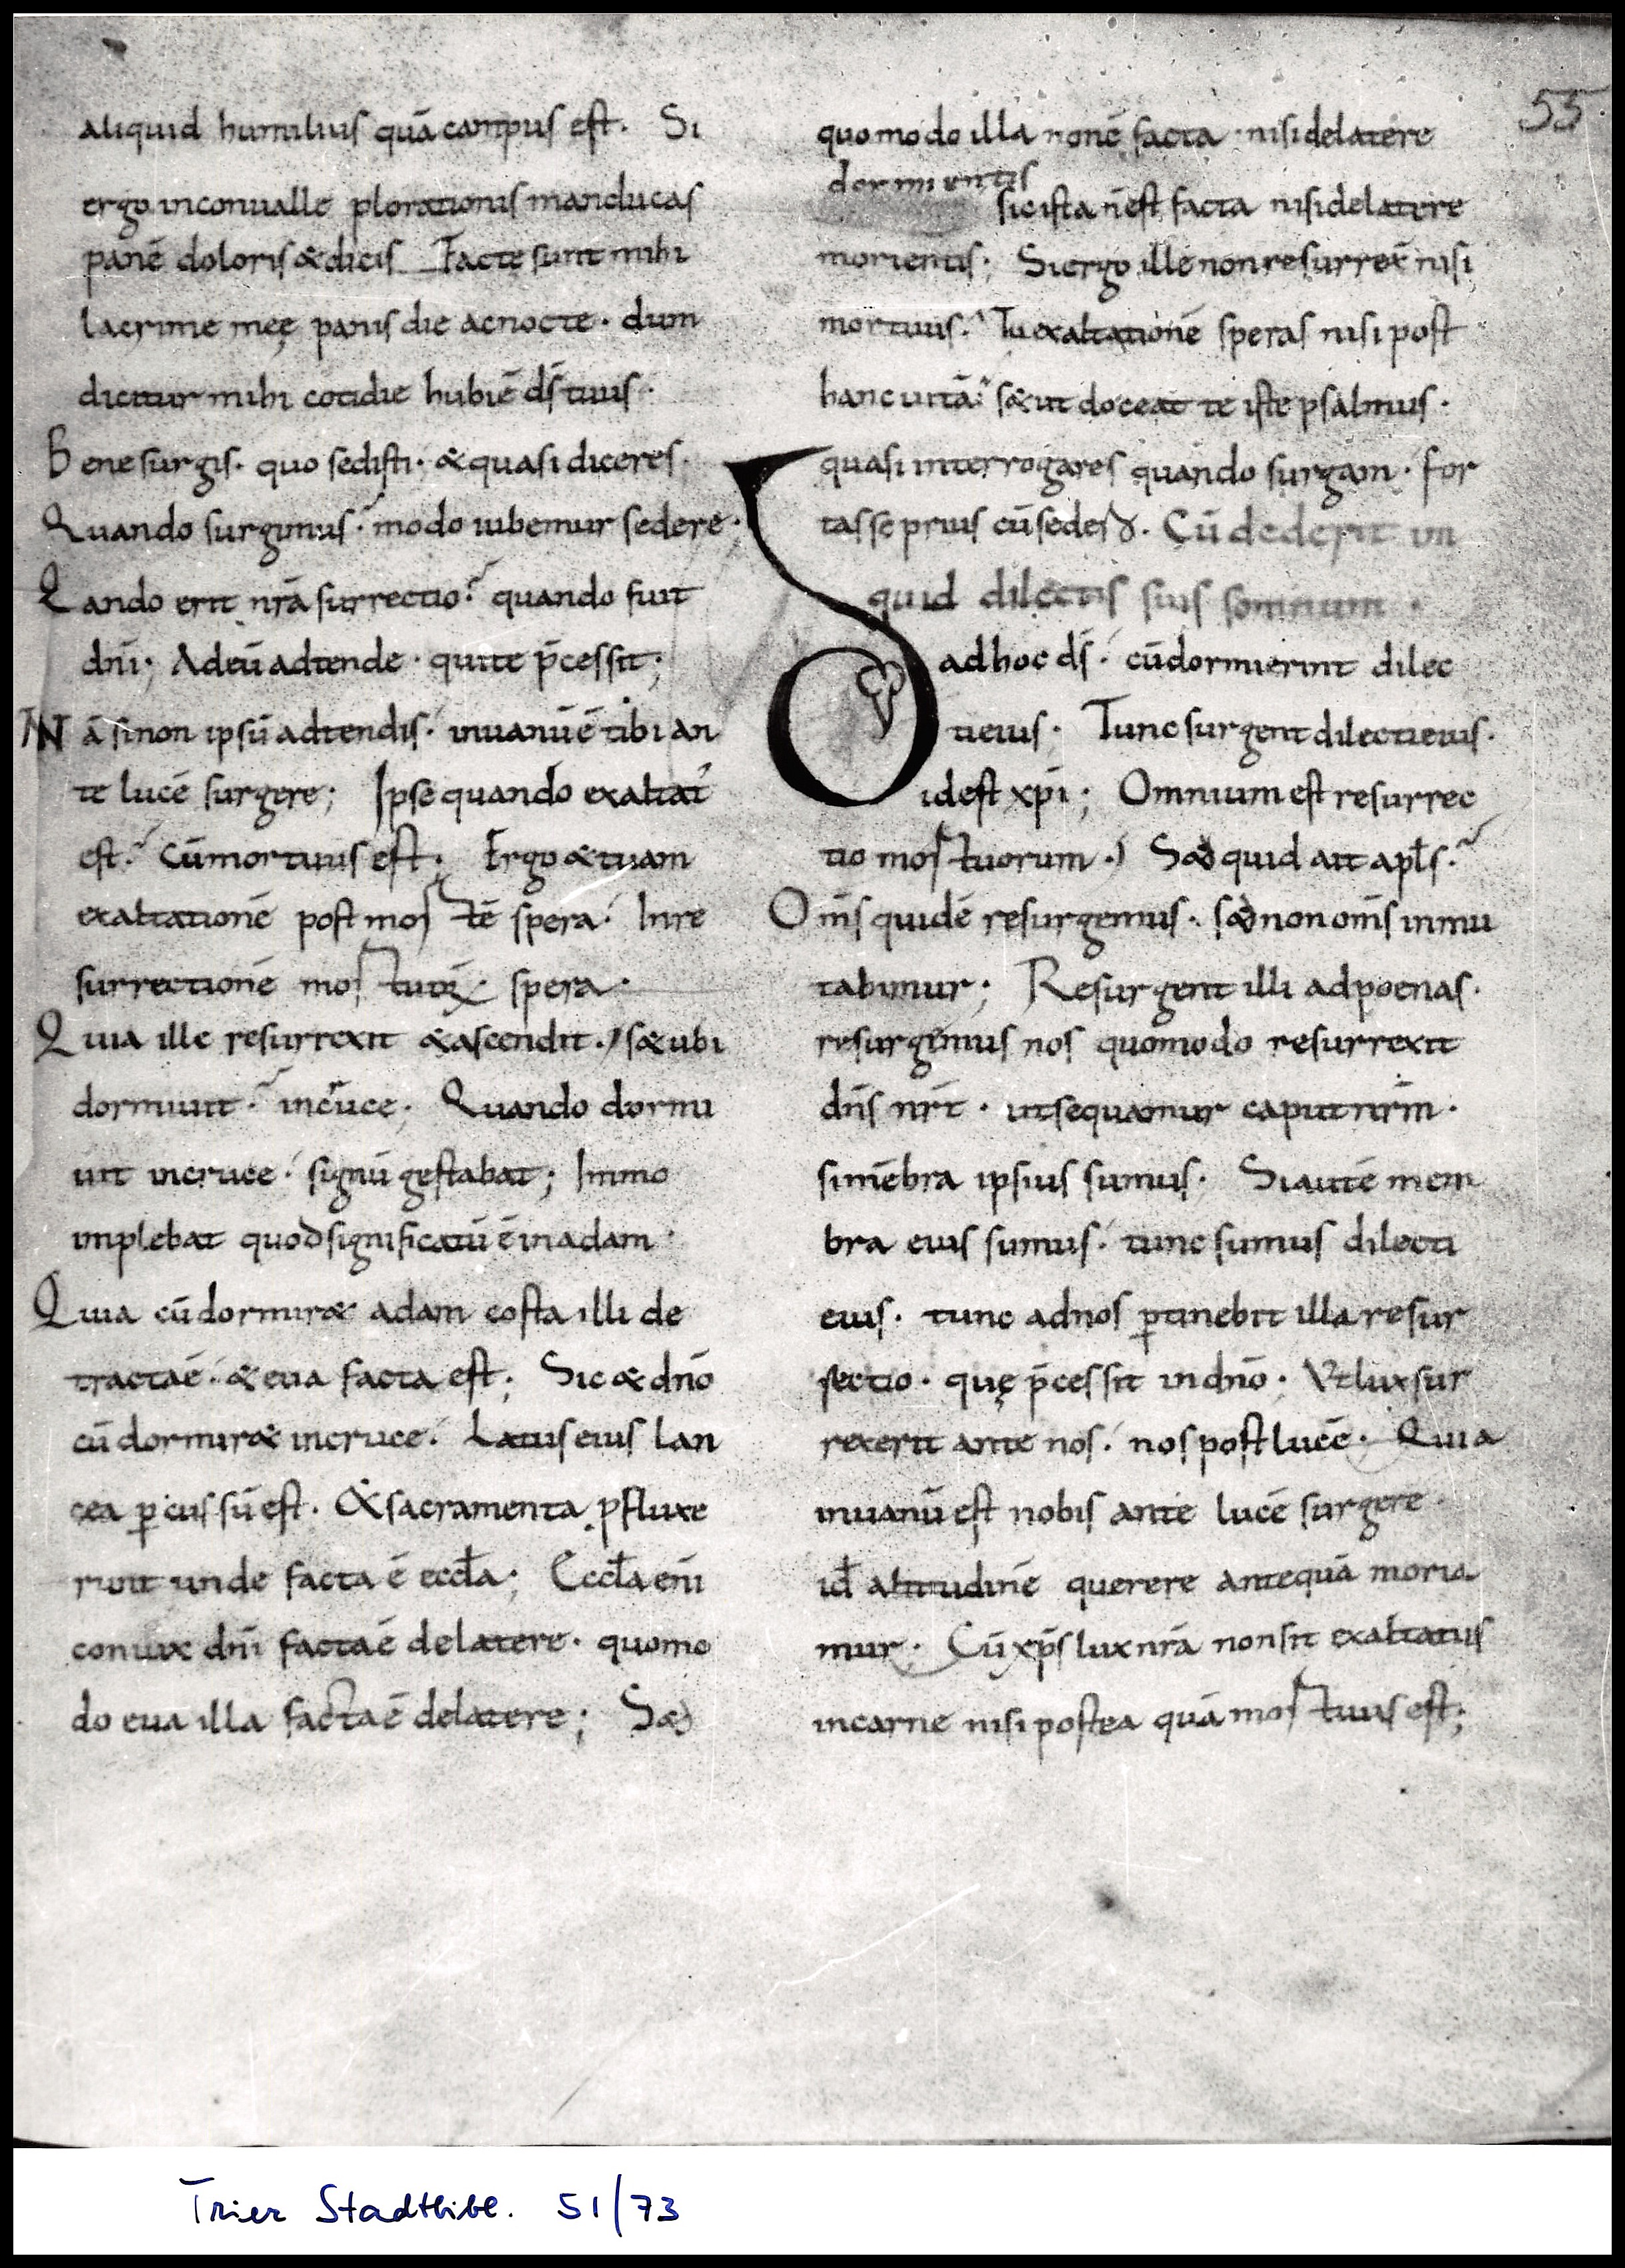 55
aliquid humilius quā campus est. Si
ergo inconualle plorationis manducas
panē doloris & dicis Facte sunt mihi
lacrime meę panis die acnocte. dum
dicitur mihi cotidie hubiē ds̄ tuus.
Bene surgis. quo sedisti. & quasi diceres.
Quando surgimus? modo iubemur sedere.
Qando erit nr̄a surrectio? quando fuit
dnī; Adeū adtende. quite p̄cessit;
Nā sinon ipsū adtendis. inuanū ē tibi an
te lucē surgere; Ipse quando exaltat'
est? Cū mortuus est; Ergo & tuam
exaltationē post mortē spera. Inre
surrectionē mortuoꝝ spera.
Quia ille resurrexit & ascendit. s& ubi
dormiuit? incruce. Quando dormi
uit incruce. signū gestabat; Immo
implebat quod significatū ē inadam.
Quia cū dormir& adam costa illi de
tracta ē. & eua facta est; Sic & dnō
cū dormir& incruce. Latus eius lan
cea ꝑcussū est. & sacramenta ꝓfluxe
runt unde facta ē eccłа; Eccła enī
coniux dnī facta ē delatere. quomo
do eua illa facta ē delatere; Sed
quomodo illa non ē facta. nisi delatere
dormientis
sicista n̄ est facta nisi delatere
morientis; Si ergo ille non resurrex̄ nisi
mortuus? Tu exaltationē speras nisi post
hanc uitā? s& ut doceat te iste psalmus.
quasi interrogares quando surgam. for
tasse prius cū sedero. Cū dederit in
quid dilectis suis somnum.
adhoc ds̄. cū dormierint dilec
ti eius. Tunc surgent dilecti eius.
idest xp̄i; Omnium est resurrec
tio mortuorum. Sed quid ait apłs?
Om̄s quidē resurgemus. sed non om̄s inmu
tabimur; Resurgent illi adpoenas.
resurgimus nos quomodo resurrexit
dn̄s nr̄t. ut sequamur caput nr̄m.
simēbra ipsius sumus. Si autē mem
bra eius sumus. tunc sumus dilecti
eius. tunc ad nos ꝑtinebit illa resur
rectio. quę p̄cessit indnō. Vt lux sur
rexerit ante nos. nos post lucē. Quia
inuanū est nobis ante lucē surgere.
id̄ altitudinē querere antequā moria
mur. Cū xp̄s lux nr̄a non sit exaltatus
incarne nisi postea quā mortuus est;
Trier Stadtbibl. 51/73